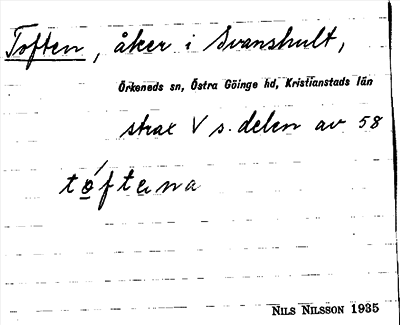 Toften, åker i Svanshult,
Örkeneds sn, Östra Göinge hd, Kristianstads län
strax V s. delen av 58
tóftena
NILS NILSSON 1935